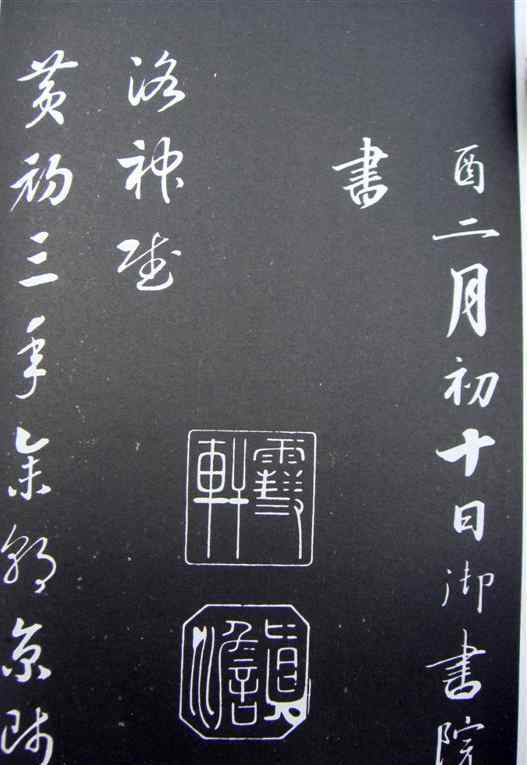 酉二月初十日御書院
書
雪軒
洛神賦
黃初三年余朝京師